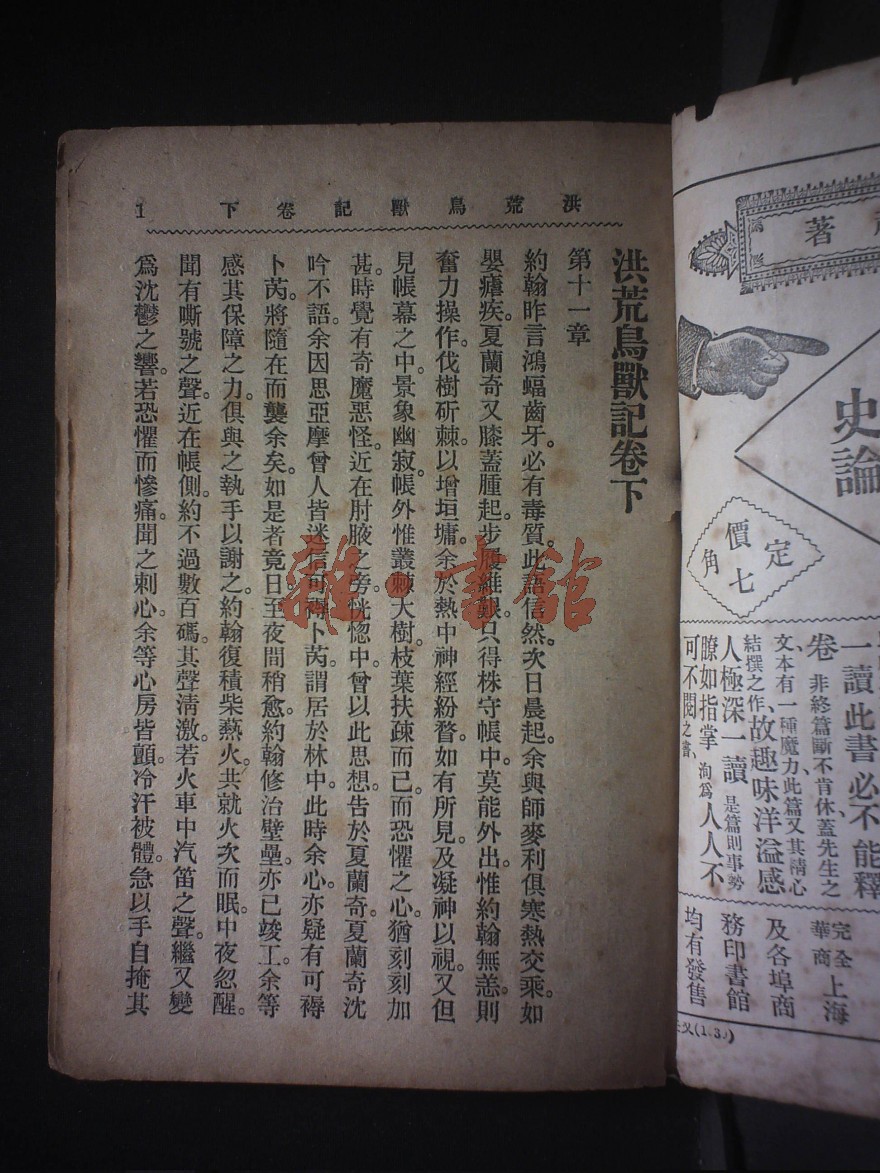 洪荒鳥獸記卷下 1
洪荒鳥獸記卷下
第十一章
約翰昨言鴻蝠齒牙。必有毒質。此語信然。次日晨起。余與師麥利俱寒熱交乘。如
嬰瘧疾。夏蘭奇又膝蓋腫起。步履維艱。只得株守帳中。莫能外出。惟約翰無恙。則
奮力操作。伐樹斫棘。以增垣墉。余於熱中神經紛瞀。如有所見。及凝神以視。又但
見帳幕之中。景象幽寂。帳外惟叢棘大樹。枝葉扶疎而已。而恐懼之心。猶刻刻加
甚。時覺有奇魔惡怪。近在肘腋之旁。恍惚中。曾以此思想。告於夏蘭奇。夏蘭奇沈
吟不語。余因思亞摩曾人皆迷信可禱卜芮。謂居於林中。此時余心。亦疑有可禱
卜芮。將隨在而襲余矣。如是者竟日。至夜間稍愈。約翰修治壁壘。亦已竣工。余等
感其保障之力。俱與之執手以謝之。約翰復積柴熱火。共就火次而眠。中夜忽醒。
聞有嘶號之聲。近在帳側。約不過數百碼。其聲淸激。若火車中汽笛之聲。繼又變
爲沈鬱之響。若恐懼而慘痛。聞之刺心。余等心房皆顫。冷汗被體。急以手自掩其
雜·書館
著
史論
定價七角
一讀此書必不能釋
卷 非終篇斷不肯休蓋先生之
文本有一種魔力此篇又其精心
結撰之作、故趣味洋溢感
人極深一讀 是篇則事勢
瞭如指掌 洵爲 人人不
可不閱之書、
完全華商 上海
及各埠商
務印書館
均有發售